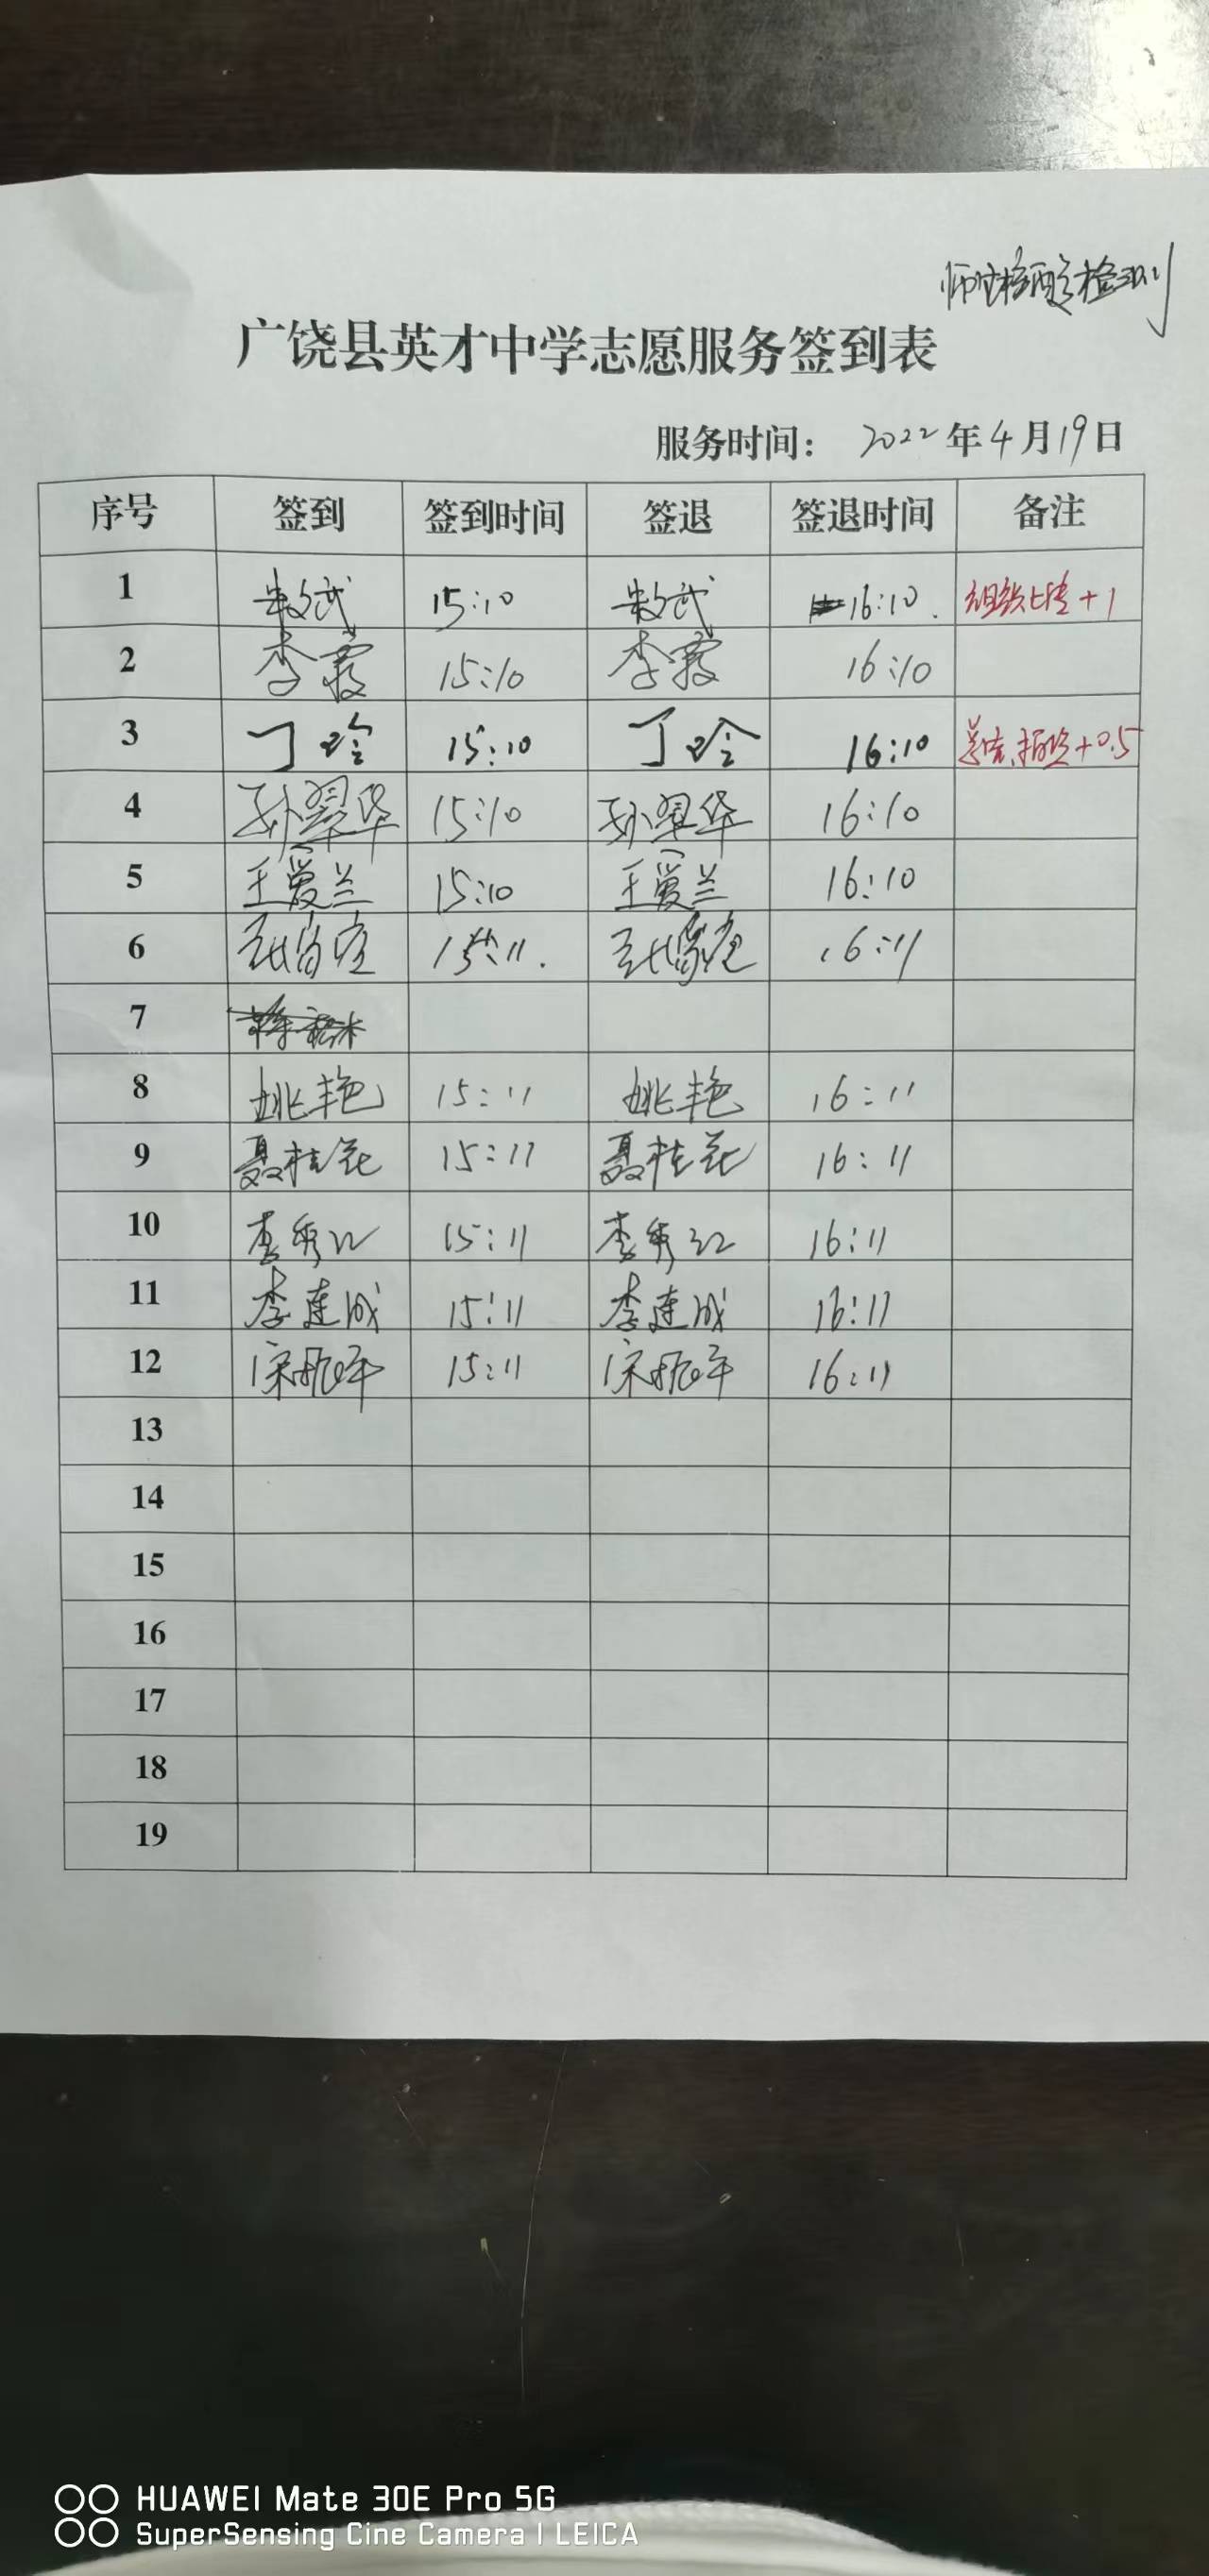 师生核酸检测
广饶县英才中学志愿服务签到表
服务时间: 2022年4月19日
序号 签到 签到时间 签退 签退时间 备注
1 15:10 16:10. +1
2 李霞 15:10 李霞 16:10
3 丁玲 15:10 丁玲 16:10 +0.5
4 孙翠华 15:10 孙翠华 16:10
5 王爱兰 15:10 王爱兰 16:10
6 15:11. 16:11
7
8 姚艳 15:11 姚艳 16:11
9 聂桂花 15:11 聂桂花 16:11
10 李秀江 15:11 李秀江 16:11
11 李建成 15:11 李建成 16:11
12 宋振军 15:11 宋振军 16:11
13
14
15
16
17
18
19
HUAWEI Mate 30E Pro 5G
SuperSensing Cine Camera | LEICA